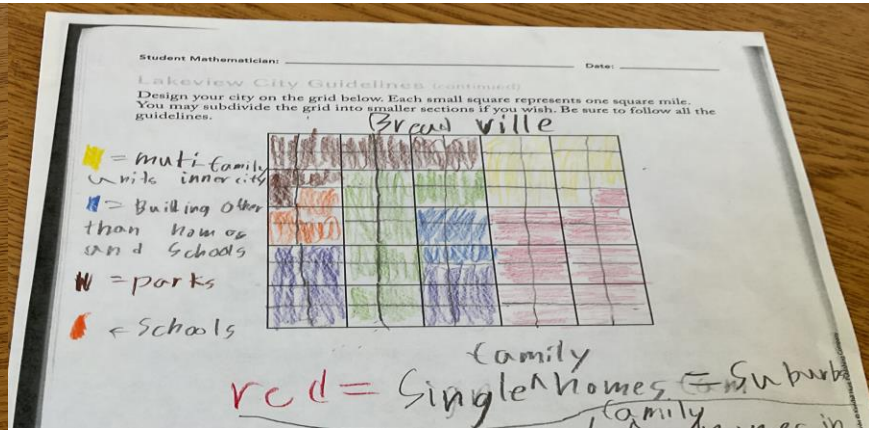 Student Mathematician:
Date:
Lakeview City Guidelines (continued)
Design your city on the grid below. Each small square represents one square mile.
You may subdivide the grid into smaller sections if you wish. Be sure to follow all the
guidelines.
Bread ville
= muti family
units inner city
= Building other
than homes
and Schools
= parks
= Schools
family
red = Single ^ homes = Suburbs
family
in